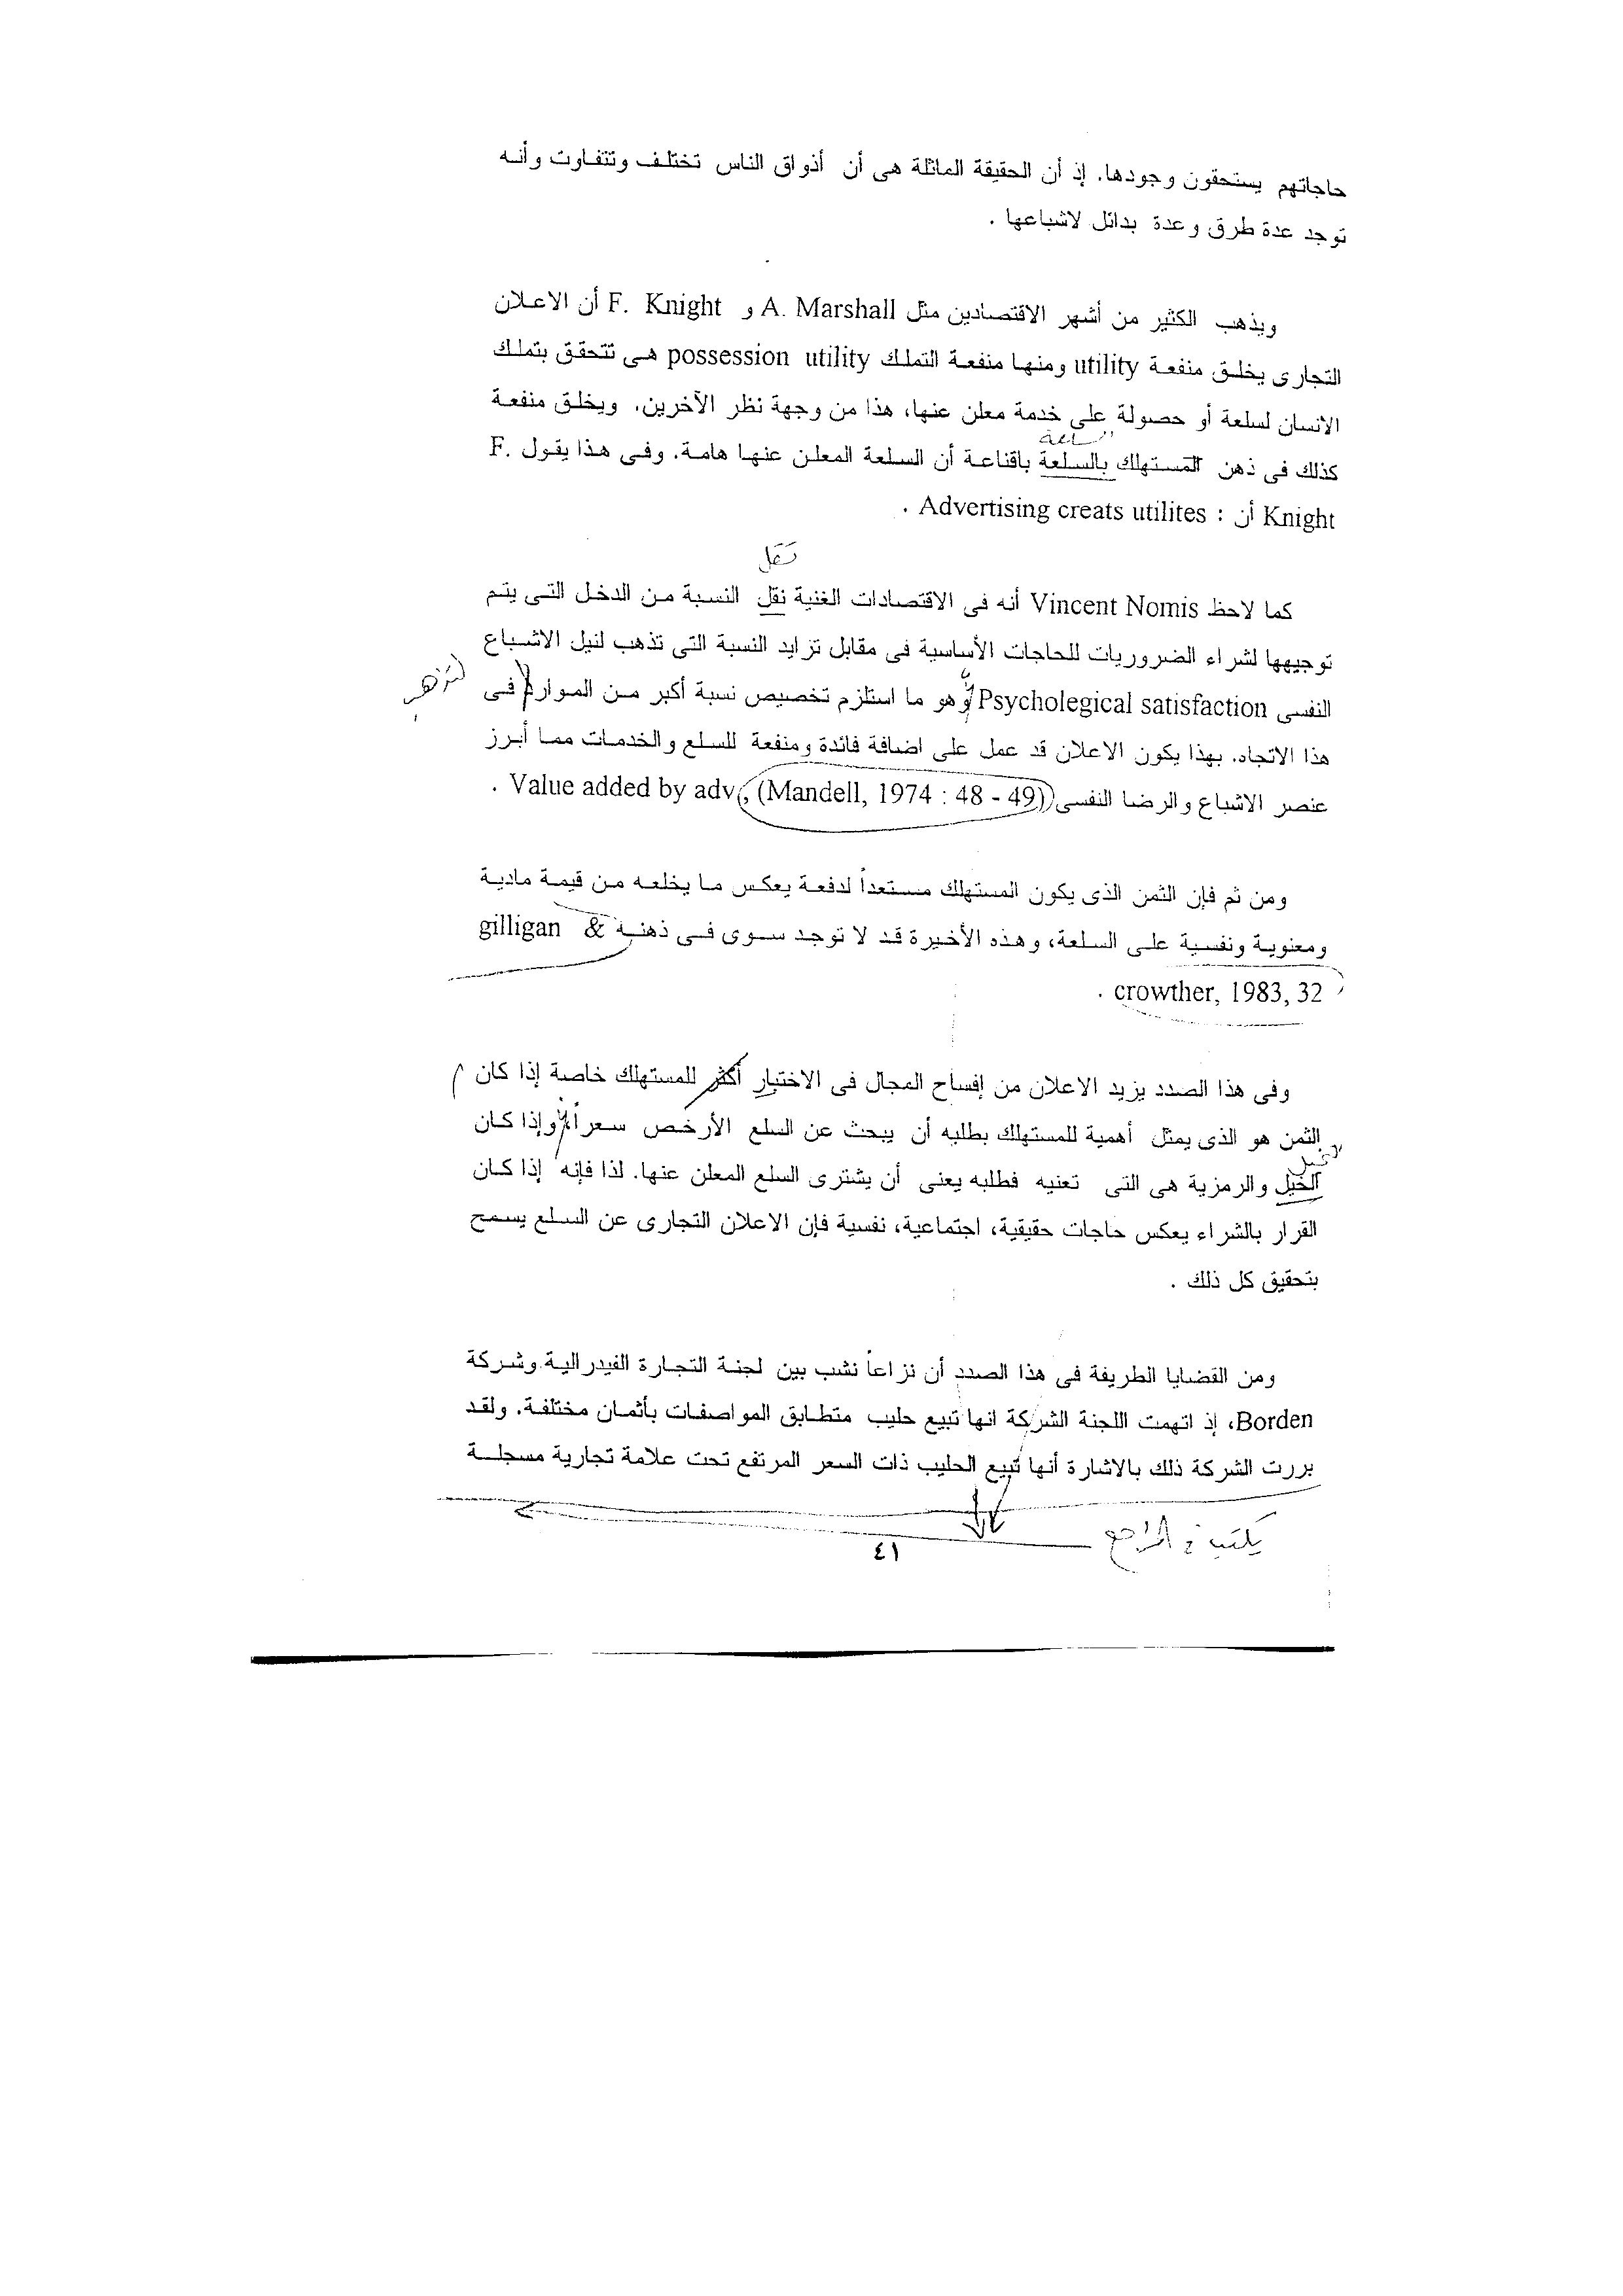 حاجاتهم يستحقون وجودها. إذ أن الحقيقة الماثلة هى أن أذواق الناس تختلف وتتفاوت وأنه
توجد عدة طرق وعدة بدائل لاشباعها .
ويذهب الكثير من أشهر الاقتصادين مثل A. Marshall و F. Knight أن الاعلان
التجارى يخلق منفعة utility ومنها منفعة التملك possession utility هى تتحقق بتملك
الانسان لسلعة أو حصولة على خدمة معلن عنها، هذا من وجهة نظر الآخرين. ويخلق منفعة
كذلك فى ذهن المستهلك بالسلعة باقناعة أن السلعة المعلن عنها هامة. وفى هذا يقول F.
Knight أن : Advertising creats utilites .
تقل
كما لاحظ Vincent Nomis أنه فى الاقتصادات الغنية نقل النسبة من الدخل التى يتم
توجيهها لشراء الضروريات للحاجات الأساسية فى مقابل تزايد النسبة التى تذهب لنيل الاشباع
النفسى Psycholegical satisfaction وهو ما استلزم تخصيص نسبة أكبر من الموارد فى
هذا الاتجاه. بهذا يكون الاعلان قد عمل على اضافة فائدة ومنفعة للسلع والخدمات مما أبرز
عنصر الاشباع والرضا النفسى (Mandell, 1974 : 48 - 49) ، Value added by adv .
ومن ثم فإن الثمن الذى يكون المستهلك مستعداً لدفعة يعكس ما يخلعه من قيمة مادية
ومعنوية ونفسية على السلعة، وهذه الأخيرة قد لا توجد سوى فى ذهنة gilligan &
crowther, 1983, 32 .
وفى هذا الصدد يزيد الاعلان من إفساح المجال فى الاختبار أكثر للمستهلك خاصة إذا كان
الثمن هو الذى يمثل أهمية للمستهلك بطلبه أن يبحث عن السلع الأرخص سعراً، وإذا كان
الخيل والرمزية هى التى تعنيه فطلبه يعنى أن يشترى السلع المعلن عنها. لذا فإنه إذا كان
القرار بالشراء يعكس حاجات حقيقية، اجتماعية، نفسية فإن الاعلان التجارى عن السلع يسمح
بتحقيق كل ذلك .
ومن القضايا الطريفة فى هذا الصدد أن نزاعاً نشب بين لجنة التجارة الفيدرالية وشركة
Borden، إذ اتهمت اللجنة الشركة انها تبيع حليب متطابق المواصفات بأثمان مختلفة. ولقد
بررت الشركة ذلك بالاشارة أنها تبيع الحليب ذات السعر المرتفع تحت علامة تجارية مسجلة
يكتب فى المراجع
٤١